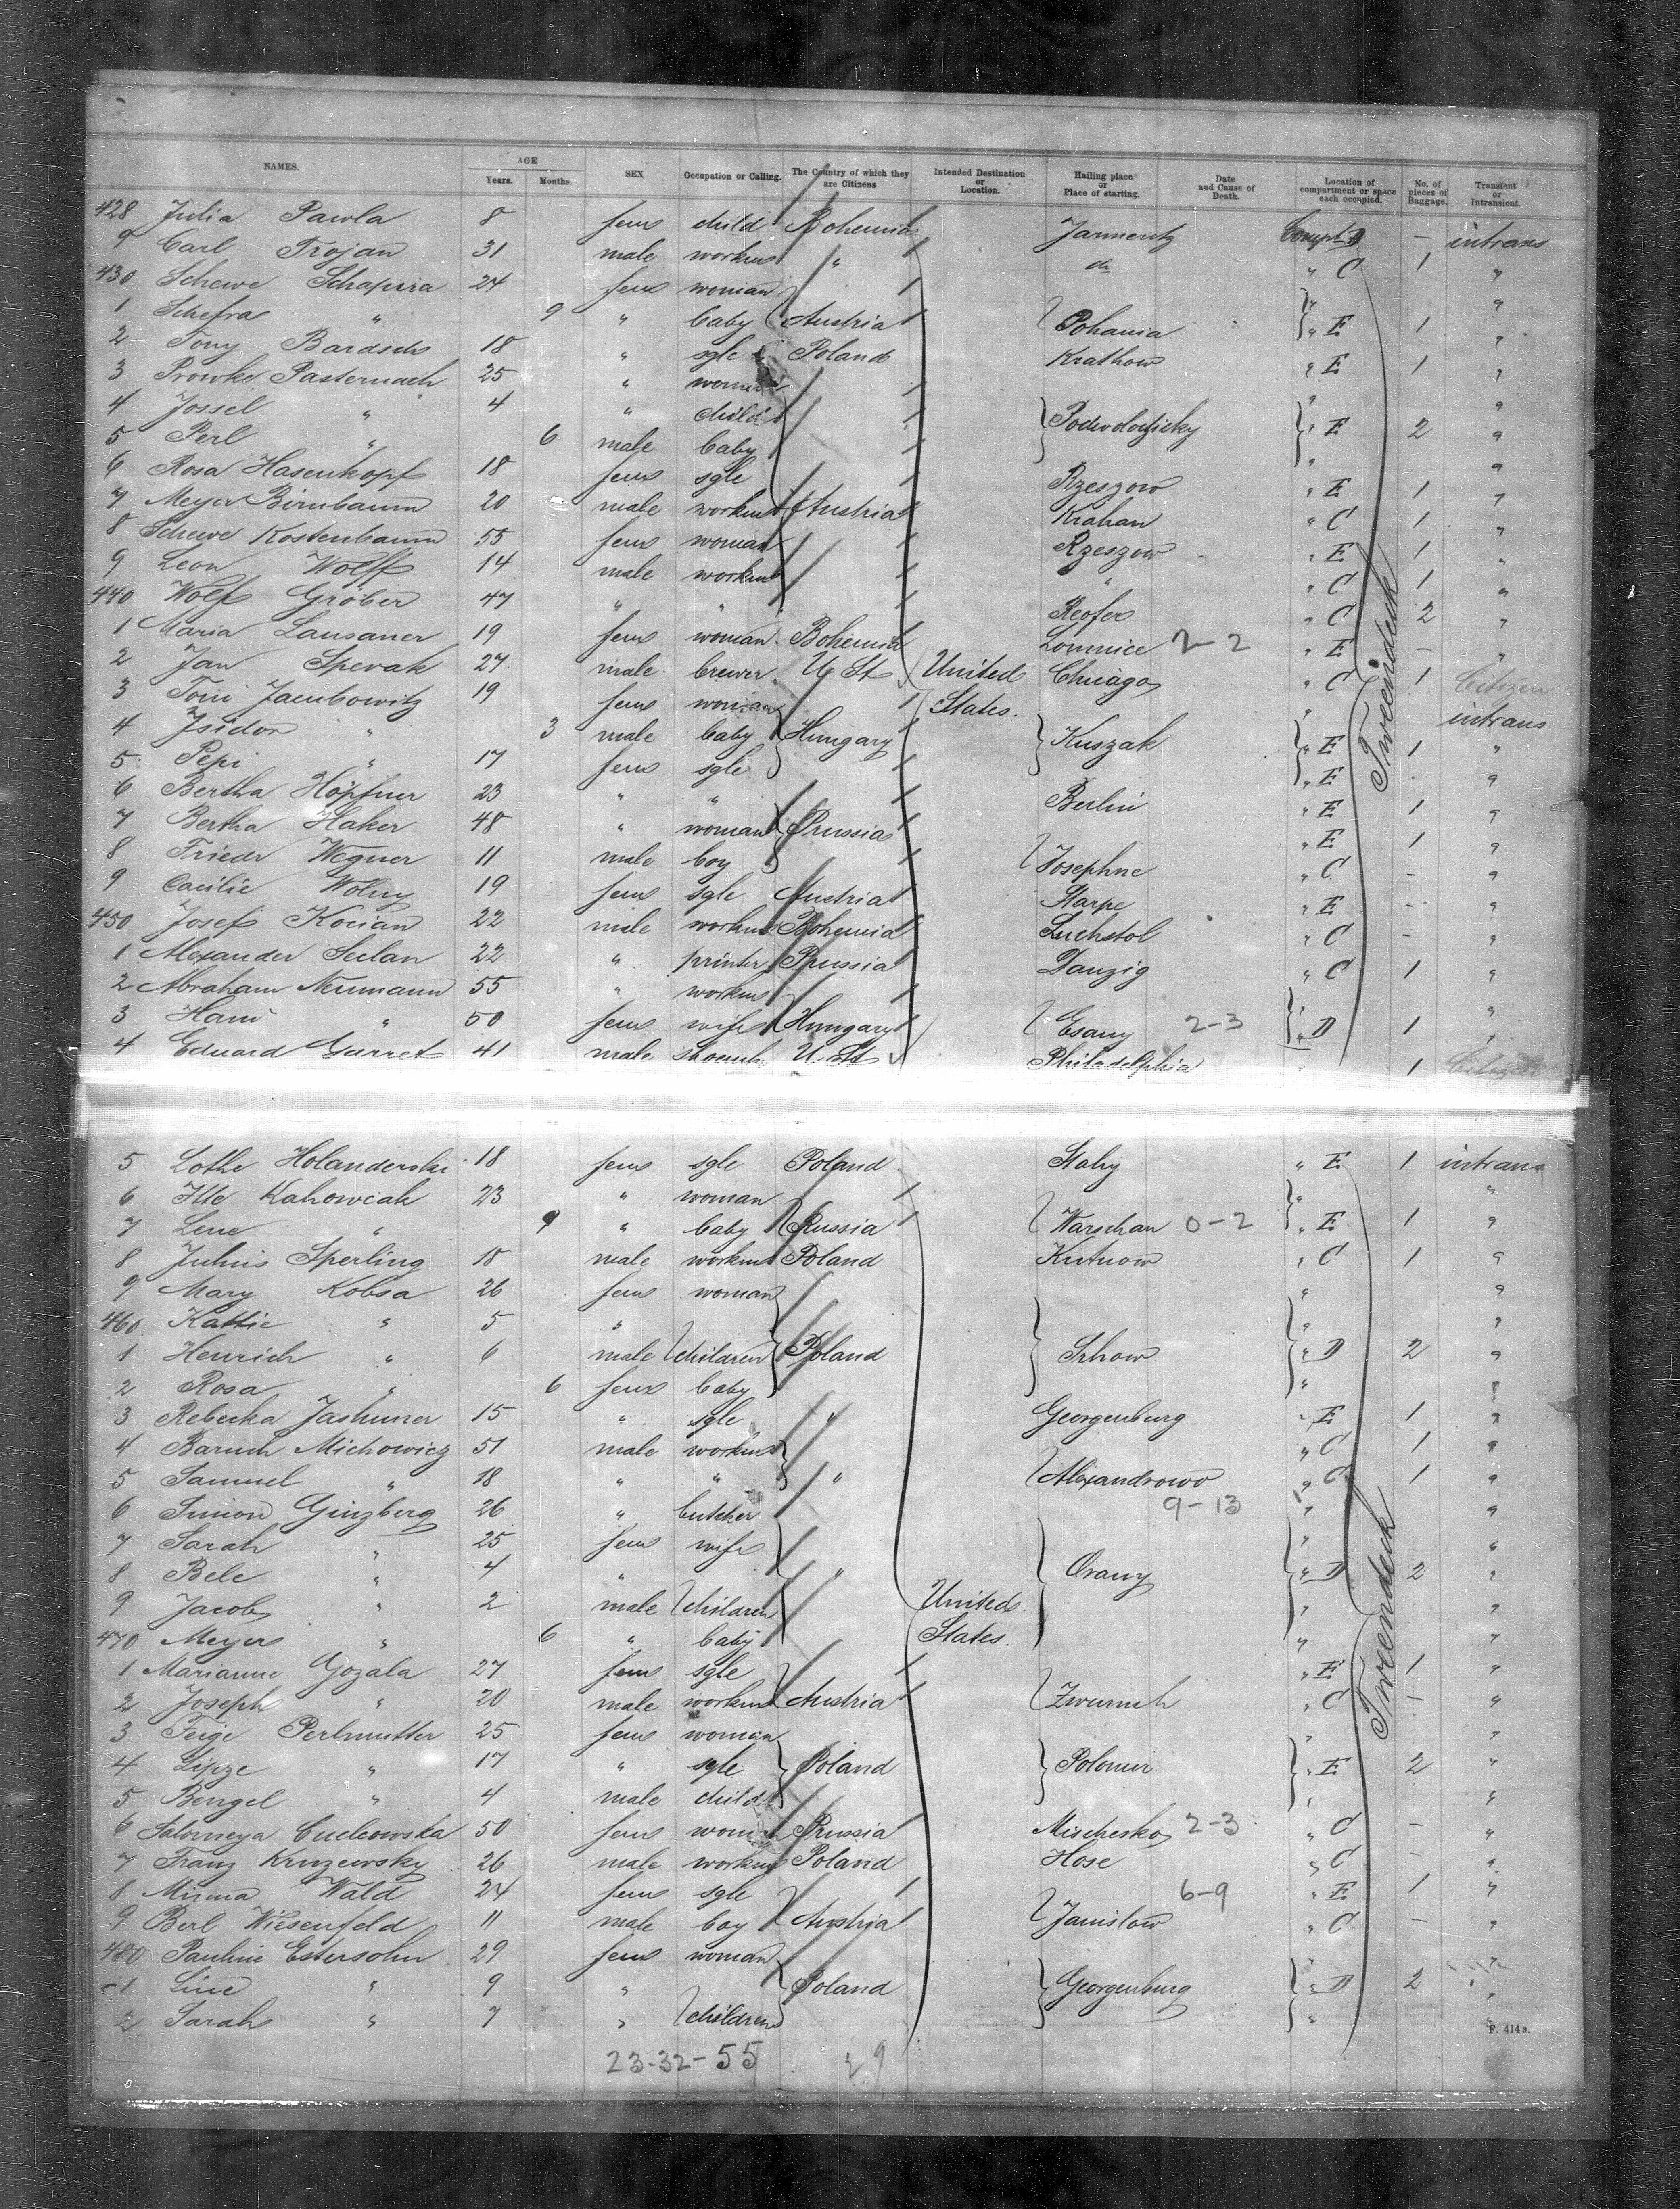 NAMES. AGE SEX Occupation or Calling. The Country of which they are Citizens Intended Destination or Location. Hailing place or Place of starting. Date and Cause of Death. Location of compartment or space each occupied. No. of pieces of Baggage. Transient or Intransient.
Years. Months.
428 Julia Pawla 8 fem child Bohemia Compt D — intrans
9 Carl Trojan 31 male workm " do " C 1 "
430 Schewe Schapira 24 fem woman "
1 Schefra " 9 " baby Austria Pohania " E 1 "
2 Tony Bardsch 18 " sgle Poland Krathow " E 1 "
3 Prowke Pasternach 25 " woman "
4 Jossel " 4 " child "
5 Perl " 6 male baby " E 2 "
6 Rosa Hasenkopf 18 fem sgle Rzeszow " E 1 "
7 Meyer Birnbaum 20 male workm Austria Krakau " C 1 "
8 Schewe Kostenbaum 55 fem woman Rzeszow " E 1 "
9 Leon Wolff 14 male workm " " C 1 "
440 Wolf Gröber 47 " " Reofer " C 2 "
1 Maria Lausaner 19 fem woman Bohemia Lomnice 2-2 " E — "
2 Jan Spevak 27 male brewer U St United Chicago " C 1 Citizen
3 Toni Jacubowitz 19 fem woman States. " intrans
4 Isidor " 3 male baby Hungary Kuszak " E 1 "
5 Pepi " 17 fem sgle " E "
6 Bertha Höpfner 23 " " Berlin " E 1 "
7 Bertha Haker 48 " woman Prussia " E 1 "
8 Friedr Wegner 11 male boy Josephne " C - "
9 Cacilie Wolny 19 fem sgle Austria Starpe " E - "
450 Josef Kocian 22 male workm Bohemia Luchstol " C - "
1 Alexander Seelan 22 " printer Prussia Danzig " C 1 "
2 Abraham Neumann 55 " workm "
3 Hani " 50 fem wife Hungary Esany 2-3 " D 1 "
4 Eduard Garret 41 male shoemk U. St Philadelphia " 1 Citizen
5 Lothe Holanderski 18 fem sgle Poland Staby " E 1 intrans
6 Itte Kahowiak 23 " woman " "
7 Lene " 9 " baby Russia Warschau 0-2 " E 1 "
8 Julius Sperling 18 male workm Poland Kutnow " C 1 "
9 Mary Kobsa 26 fem woman " "
460 Kattie " 5 " " "
1 Henrich " 6 male children Poland Srhow " D 2 "
2 Rosa " 6 fem baby " "
3 Rebecka Jashuner 15 " sgle " Georgenburg " E 1 "
4 Baruch Michowicz 51 male workm " C 1 "
5 Samuel " 18 " " " Alexandrowo " C 1 "
6 Simon Ginzberg 26 " butcher 9-13 " "
7 Sarah " 25 fem wife " "
8 Bele " 4 " " Orany " D 2 "
9 Jacob " 2 male children United " "
470 Meyer " 6 " baby States. " "
1 Marianne Gozala 27 fem sgle " E 1 "
2 Joseph " 20 male workm Austria Zwurnch " C — "
3 Feige Perlmutter 25 fem woman " "
4 Lipze " 17 " sgle Poland Polomir " E 2 "
5 Bengel " 4 male child " "
6 Salomeya Cuchowska 50 fem woman Prussia Mischesko 2-3 " C — "
7 Franz Kruzewsky 26 male workm Poland Hose " C - "
8 Minna Wald 24 fem sgle 6-9 " E 1 "
9 Berl Wiesenfeld 11 male boy Austria Janislow " C — "
480 Pauline Estersohn 29 fem woman " "
1 Line " 9 " Poland Georgenburg " D 2 "
2 Sarah " 7 " children " "
Tweendeck
Tweendeck
F. 414a.
23-32-55 29